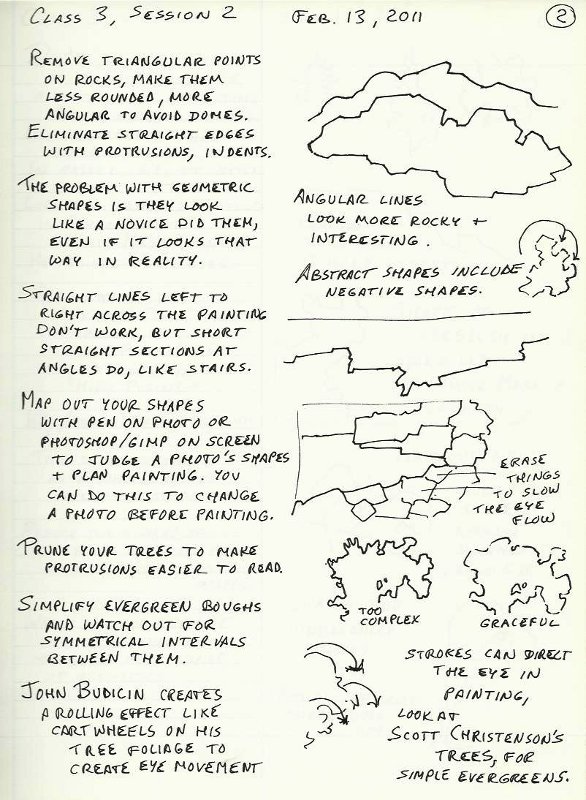 CLASS 3, SESSION 2 FEB. 13, 2011 2
REMOVE TRIANGULAR POINTS
ON ROCKS, MAKE THEM
LESS ROUNDED, MORE
ANGULAR TO AVOID DOMES.
ELIMINATE STRAIGHT EDGES
WITH PROTRUSIONS, INDENTS.
THE PROBLEM WITH GEOMETRIC
SHAPES IS THEY LOOK
LIKE A NOVICE DID THEM,
EVEN IF IT LOOKS THAT
WAY IN REALITY.
ANGULAR LINES
LOOK MORE ROCKY +
INTERESTING.
ABSTRACT SHAPES INCLUDE
NEGATIVE SHAPES.
STRAIGHT LINES LEFT TO
RIGHT ACROSS THE PAINTING
DON'T WORK, BUT SHORT
STRAIGHT SECTIONS AT
ANGLES DO, LIKE STAIRS.
MAP OUT YOUR SHAPES
WITH PEN ON PHOTO OR
PHOTOSHOP/GIMP ON SCREEN
TO JUDGE A PHOTO'S SHAPES
+ PLAN PAINTING. YOU
CAN DO THIS TO CHANGE
A PHOTO BEFORE PAINTING.
ERASE
THINGS
TO SLOW
THE EYE
FLOW
PRUNE YOUR TREES TO MAKE
PROTRUSIONS EASIER TO READ.
TOO
COMPLEX
GRACEFUL
SIMPLIFY EVERGREEN BOUGHS
AND WATCH OUT FOR
SYMMETRICAL INTERVALS
BETWEEN THEM.
JOHN BUDICIN CREATES
A ROLLING EFFECT LIKE
CARTWHEELS ON HIS
TREE FOLIAGE TO
CREATE EYE MOVEMENT
STROKES CAN DIRECT
THE EYE IN
PAINTING,
LOOK AT
SCOTT CHRISTENSON'S
TREES, FOR
SIMPLE EVERGREENS.